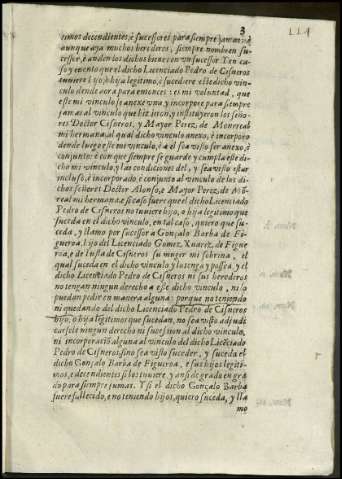 3
cimos decendientes, è sucessores para siempre jamas: è
aunque aya muchos herederos, siempre nombren su-
cessor, è anden los dichos bienes en vn sucessor Y en ca-
so y evento que el dicho Licenciado Pedro de Cisneros
tuuiere hijo, ò hija legitimo, è sucediere este dicho vin-
culo dende aora para entonces: es mi voluntad, que
este mi vinculo se anexe vna y incorpore para siempre
jamas al vinculo que hizieron, y instituyeron los seño-
res Doctor Cisneros, y Mayor Perez de Monreal
mi hermana, al qual dicho vinculo anexo, è incorporo
dende luego este mi vinculo, è à el sea visto ser anexo, è
conjunto: è con que siempre se guarde y cumpla este di-
cho mi vinculo, è las condiciones del, y sea visto estar
incluso, è incorporado, è conjunto al vinculo de los di-
chos señores Doctor Alonso, è Mayor Perez, de Mõ-
real mi hermana: è si caso fuere que el dicho Licenciado
Pedro de Cisneros no tuuiere hijo, ò hija legitimo que
suceda en el dicho vinculo, en tal caso, quiero que su-
ceda, y llamo por sucessor a Gonçalo Barba de Fi-
gueroa, hijo del Licenciado Gomez Xuarez, de Figue-
roa, è de Luisa de Cisneros su muger mi sobrina, el
qual suceda en el dicho vinculo y lo tenga y possea, y el
dicho Licenciado Pedro de Cisneros ni sus herederos
no tengan ningun derecho a este dicho vinculo, ni lo
puedan pedir en manera alguna: porque no teniendo
ni quedando del dicho Licenciado Pedro de Cisneros
hijo, ò hija legitimos que sucedan, no sea visto adjudi
carsele ningun derecho ni sucession al dicho vinculo,
ni incorporaciõ alguna al vinculo del dicho Licẽciado
Pedro de Cisneros. sino sea visto suceder, y suceda el
dicho Gonçalo Barba de Figueroa, e sus hijos legiti-
mos, e decendientes si los tuuiere y ansi de grado en gra-
do para siempre jamas. Y si el dicho Gonçalo Barba
fuere fallecido, e no teniendo hijos, quiero suceda, y lla
mo